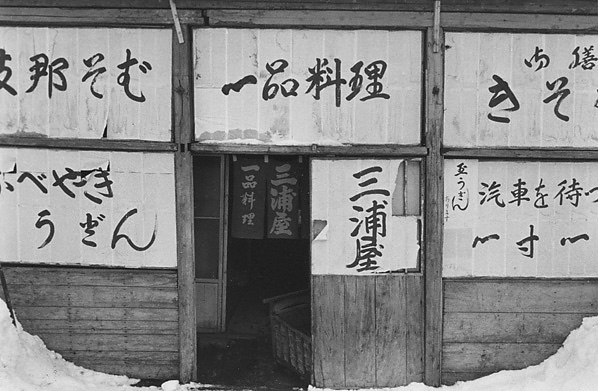 支那そば
一品料理
御膳
きそ
べやき
うどん
一品料理
三浦屋
三浦屋
玉うどん
汽車を待つ
一寸一